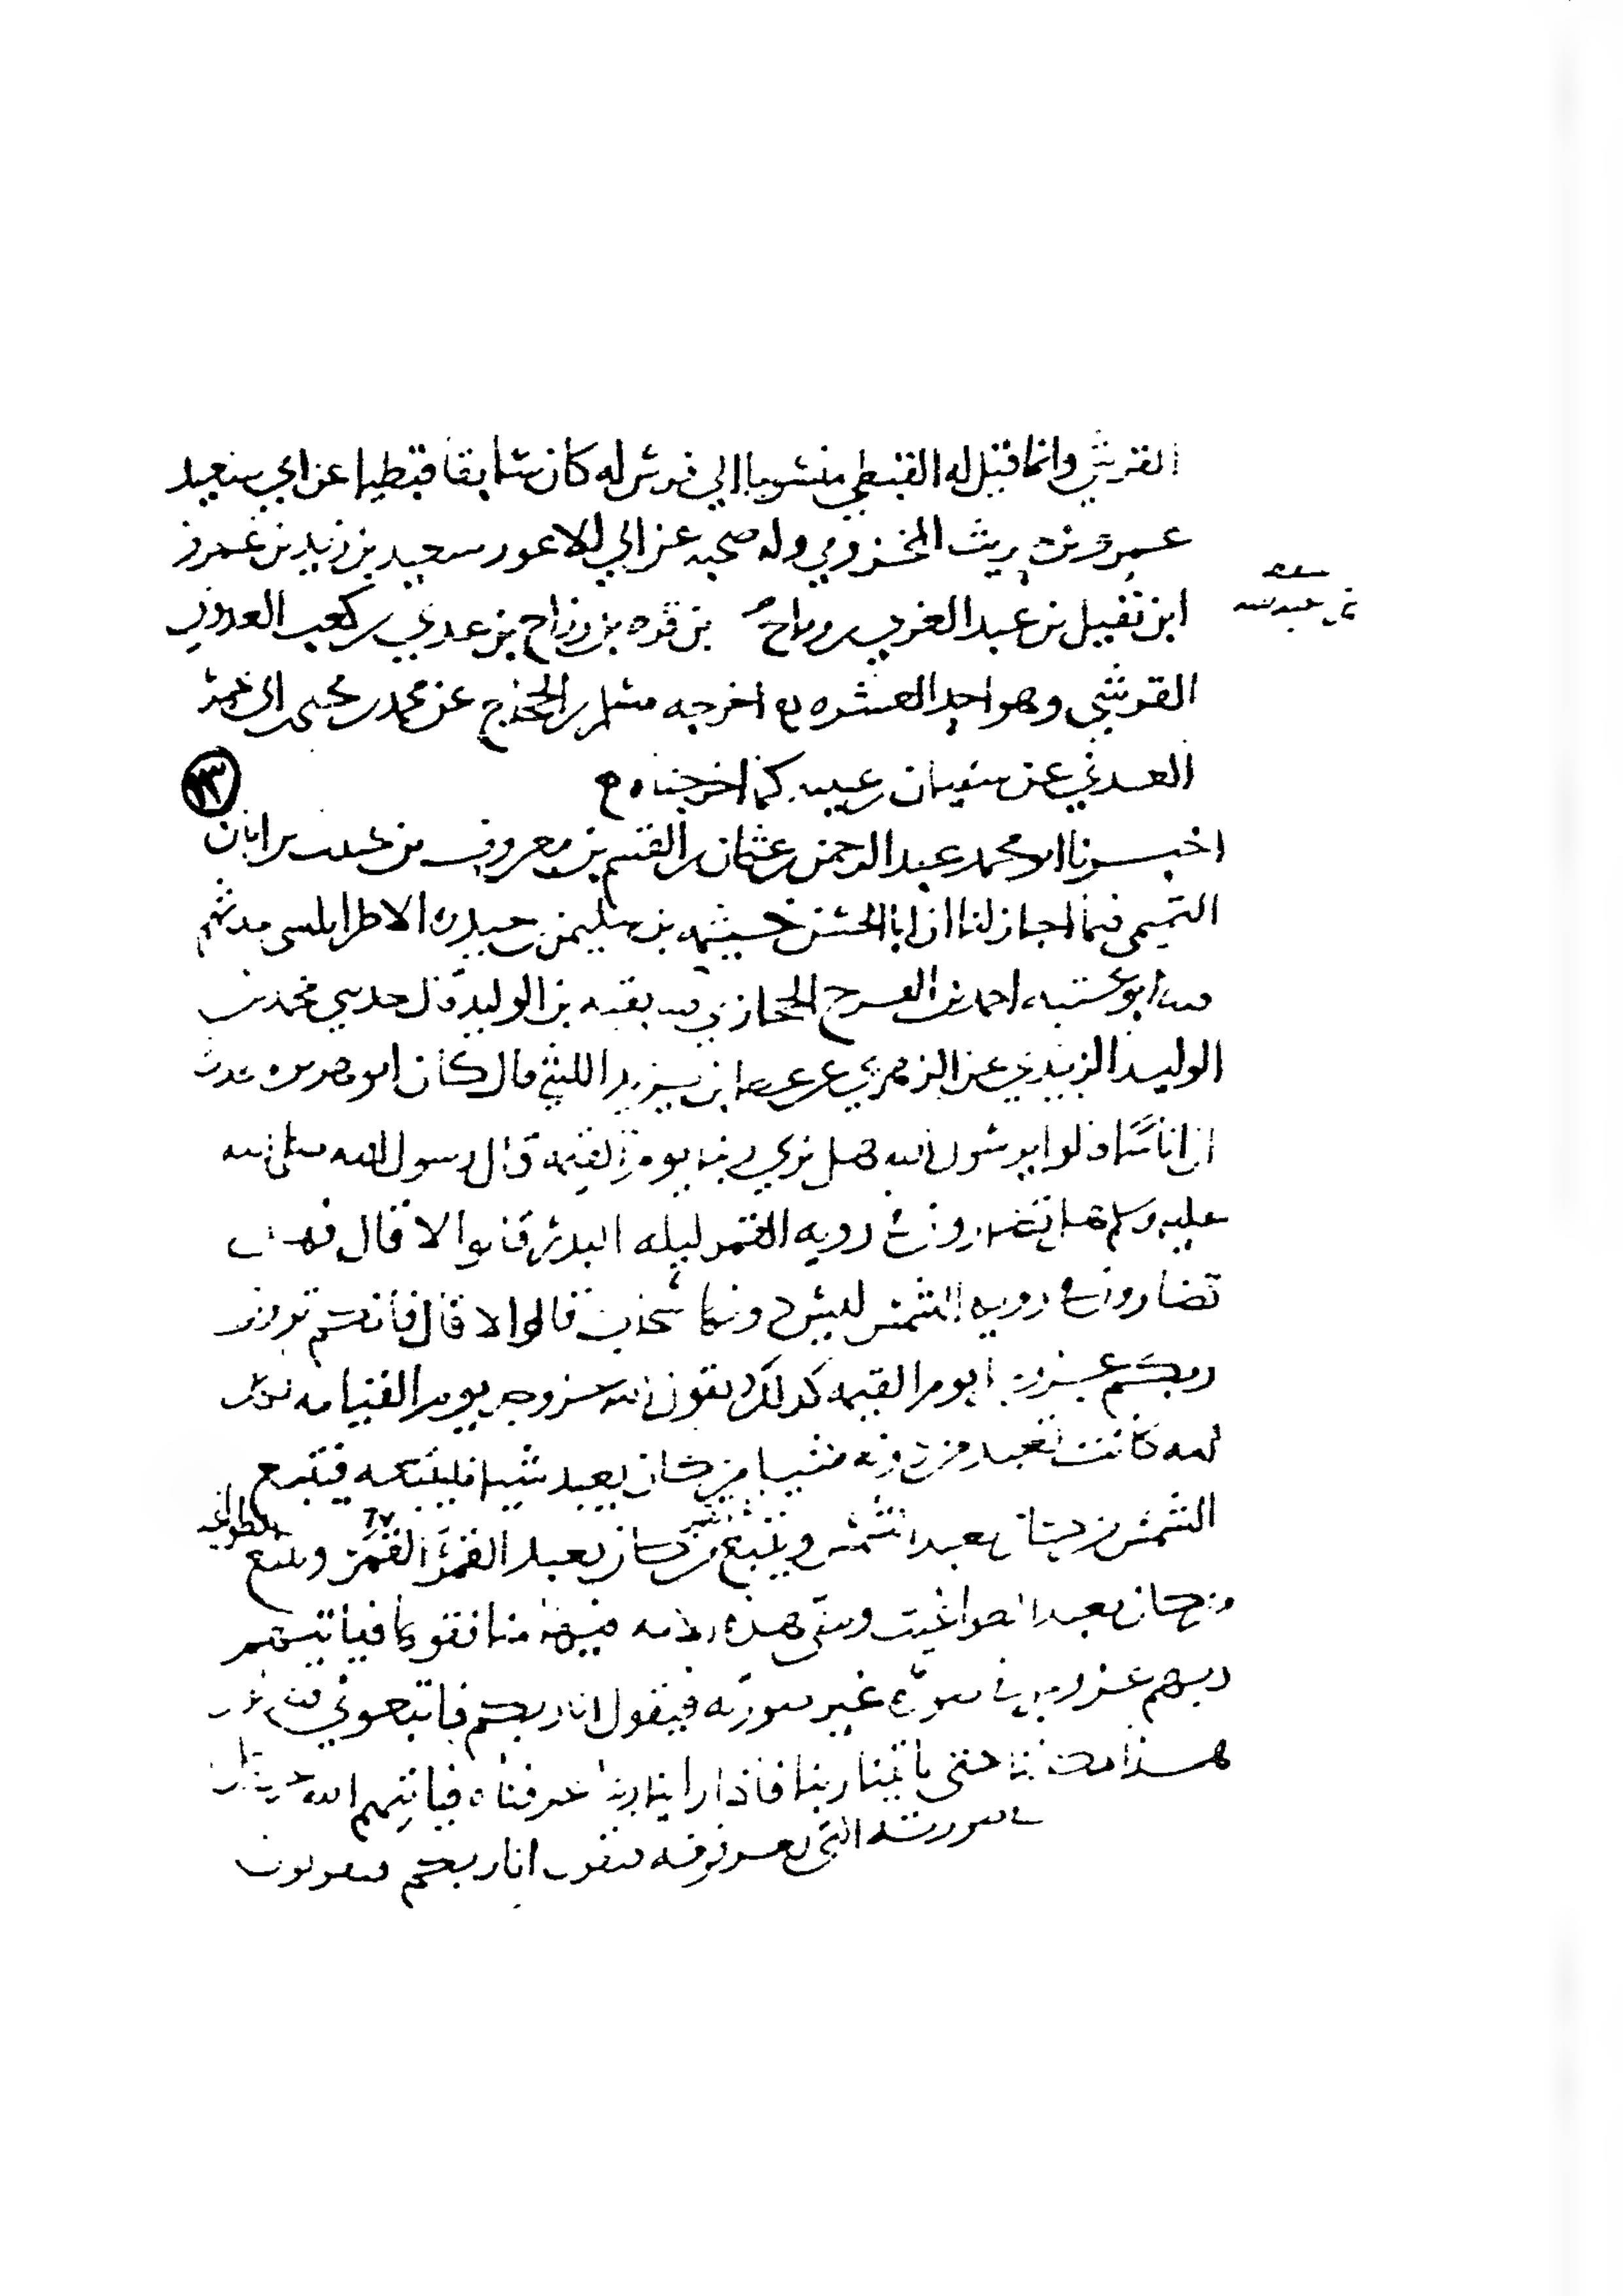 القرشي وانما قيل له القبطي منسوبا الي فرس له كان سابقا قبطيا عن ابي سعيد
عمرو بن حريث المخزومي وله صحبه عن ابي الاعور سعيد بن زيد بن عمرو
ابن نفيل بن عبد العزي بن رياح بن قره بن رزاح بن عدي بن كعب العدوي
بن عبد الله
القرشي وهو احد العشره اخرجه مسلم بن الحجاج عن محمد بن يحيى بن ابي عمر
العدني عن سفيان بن عيينه كما اخرجناه
٢٣
اخبرنا ابو محمد عبد الرحمن بن عثمان بن القسم بن معروف بن حبيب بن ابان
التميمي فيما اجاز لنا ان ابا الحسن خيثمه بن سليمن بن حيدره الاطرابلسي حدثهم
ثنا ابو عتبه احمد بن الفرج الحجازي ثنا بقيه بن الوليد قال حدثني محمد بن
الوليد الزبيدي عن الزهري عن عطا بن يزيد الليثي قال كان ابو هريره يحدث
ان اناسا قالوا يرسول الله هل نري ربنا يوم القيمه قال رسول الله صلى الله
عليه وسلم هل تضارون في رويه القمر ليله البدر قالوا لا قال فهل
تضارون في رويه الشمس ليس دونها سحاب قالوا لا قال فانكم ترون
ربكم عز وجل يوم القيمه كذلك يقول الله عز وجل يوم القيامه لكل
امه كانت تعبد من دونه شيا من كان يعبد شيا فليتبعه فيتبع
الشمس من كان يعبد الشمس ويتبع من كان يعبد القمر القمر ويتبع
الطواغيت
من كان يعبد الطواغيت وتبقى هذه الامه فيها منافقوها فياتيهم
ربهم عز وجل في صورة غير صورته فيقول انا ربكم فاتبعوني فيقولون
هذا مكاننا حتى ياتينا ربنا فاذا راينا ربنا عرفناه فياتيهم الله تبارك
في صورته التي يعرفونه فيقول انا ربكم فيقولون